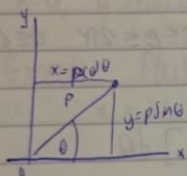 y
x=ρcosθ
ρ
y=ρsinθ
θ
x
0